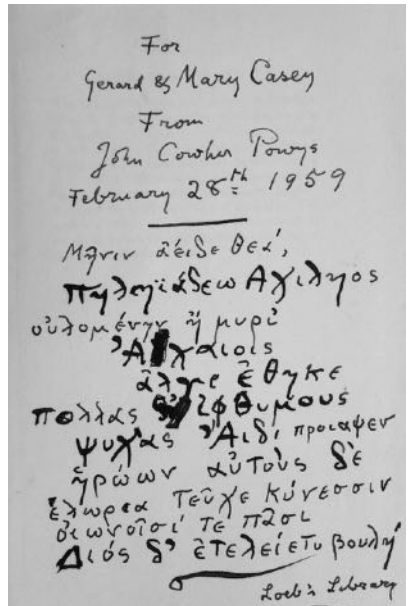 For
Gerard & Mary Casey
From
John Cowper Powys
February 28th 1959
Μῆνιν ἄειδε θεά,
Πηληϊάδεω Αχιληος
οὐλομένην ἥ μυρί
Ἀχάιοις
ἄλγε ἔθηκε
πολλας δ' ἰφθυμους
ψυχας Ἄιδι προιαψεν
ἡρώων αὐτους δε
ἑλωρεα τεῦχε κύνεσσιν
οἰωνοῖσί τε πᾶσι
Διός δ' ἐτελείετο βουλή
Loeb's Library